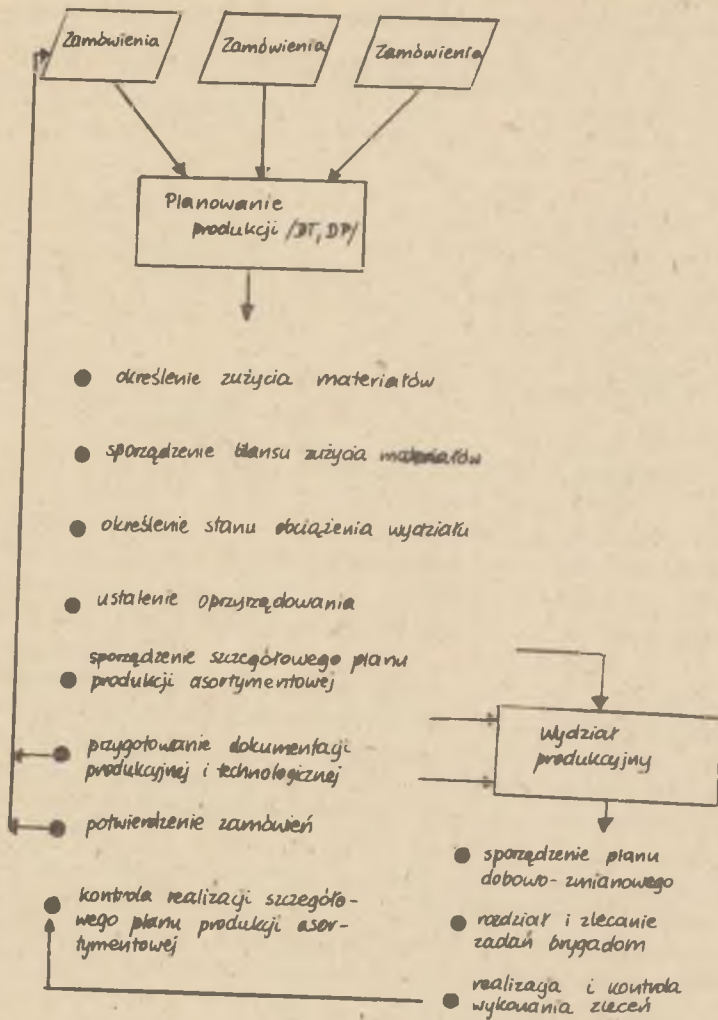 Zamówienia
Zamówienia
Zamówienia
Planowanie
produkcji /DT, DP/
● określenie zużycia materiałów
● sporządzenie bilansu zużycia materiałów
● określenie stanu obciążenia wydziału
● ustalenie oprzyrządowania
sporządzenie szczegółowego planu
● produkcji asortymentowej
● przygotowanie dokumentacji
produkcyjnej i technologicznej
● potwierdzenie zamówień
● kontrola realizacji szczegóło-
wego planu produkcji asor-
tymentowej
Wydział
produkcyjny
● sporządzenie planu
dobowo-zmianowego
● rozdział i zlecanie
zadań brygadom
● realizacja i kontrola
wykonania zleceń